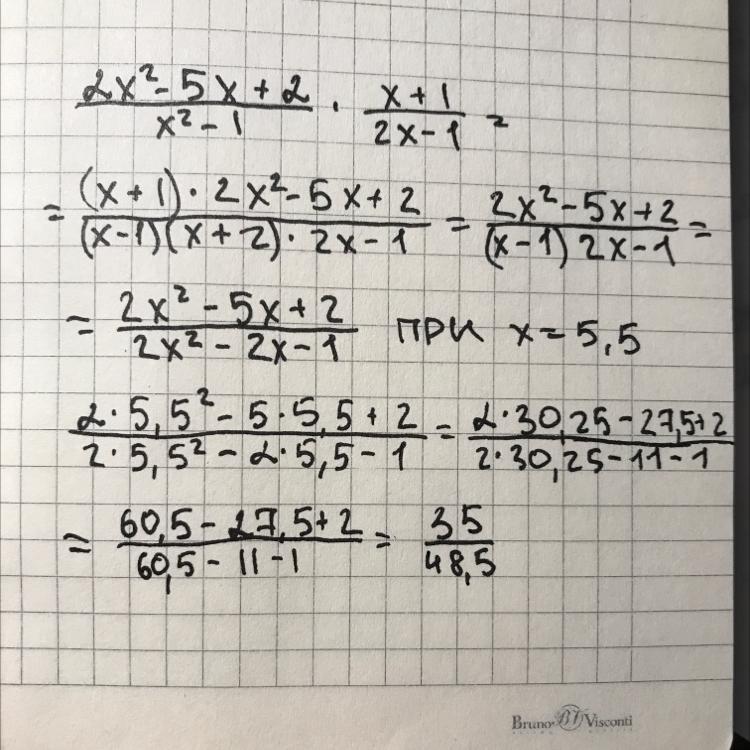 (2x² - 5x + 2)/(x² - 1) · (x + 1)/(2x - 1) =
= ((x + 1) · 2x² - 5x + 2)/((x - 1)(x + 2) · 2x - 1) = (2x² - 5x + 2)/((x - 1) 2x - 1) =
= (2x² - 5x + 2)/(2x² - 2x - 1) при x = 5,5
(2 · 5,5² - 5 · 5,5 + 2)/(2 · 5,5² - 2 · 5,5 - 1) = (2 · 30,25 - 27,5 + 2)/(2 · 30,25 - 11 - 1)
= (60,5 - 27,5 + 2)/(60,5 - 11 - 1) = 35/48,5
Bruno BV Visconti